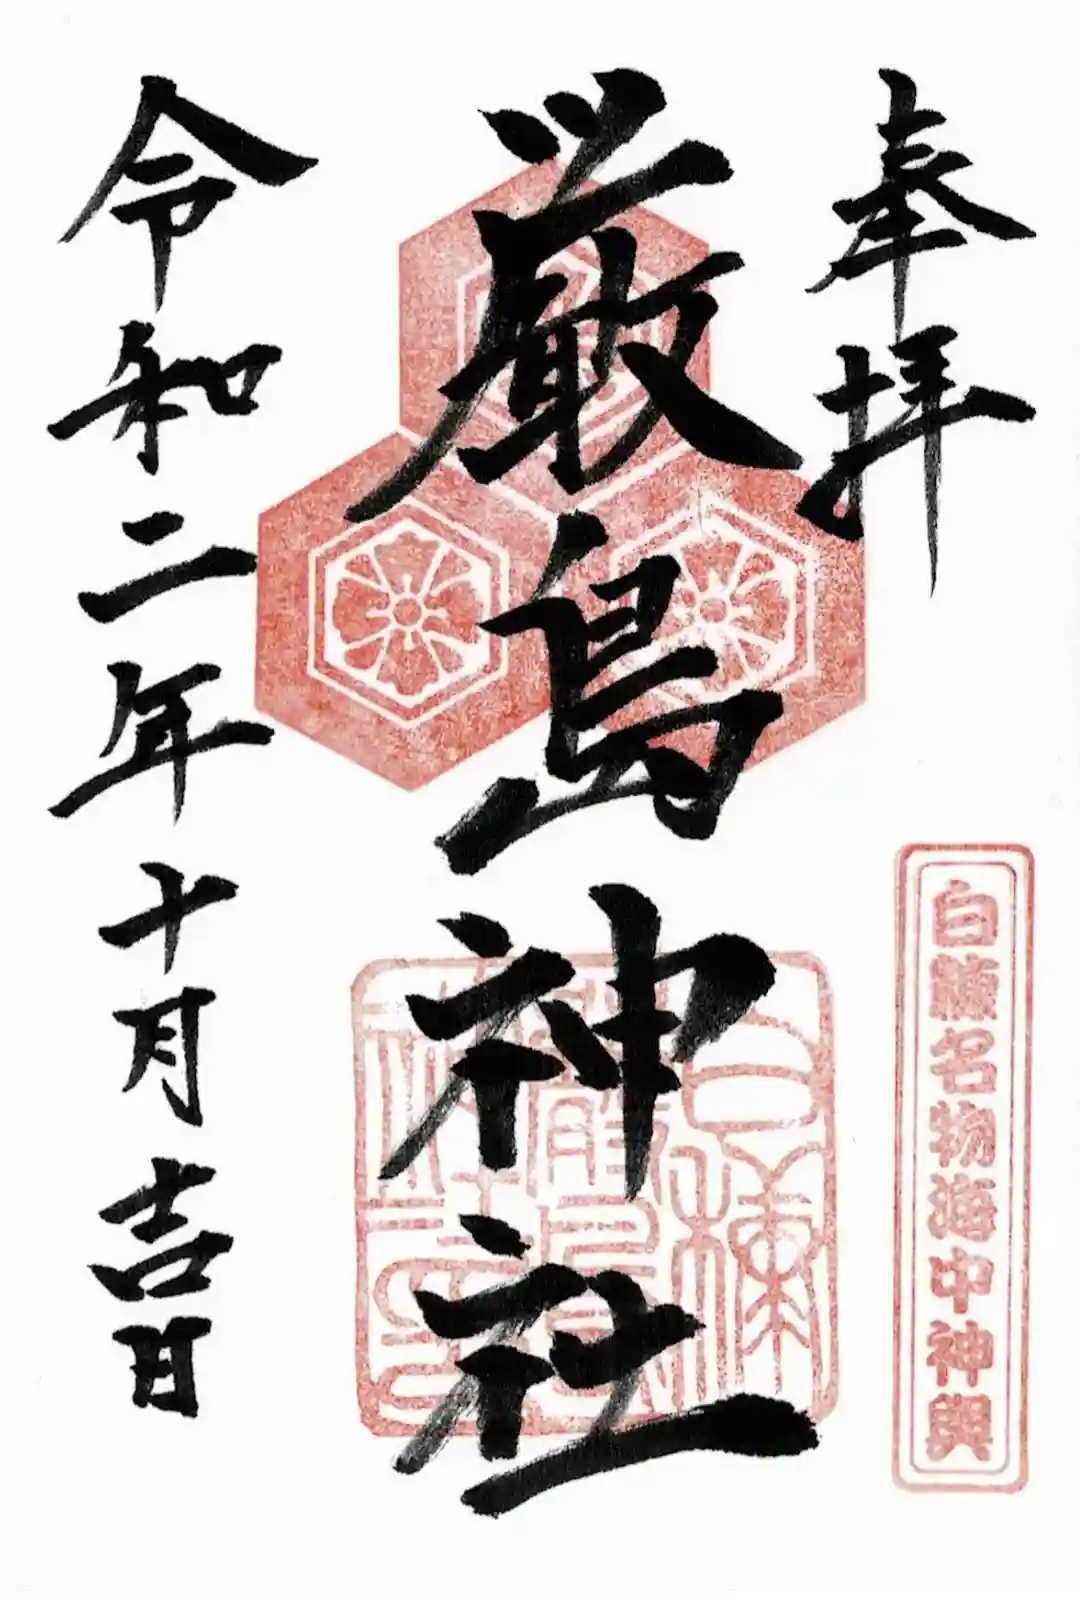 奉拝
厳島神社
令和二年十月吉日
白糠名物海中神輿
白糠
厳島
神社